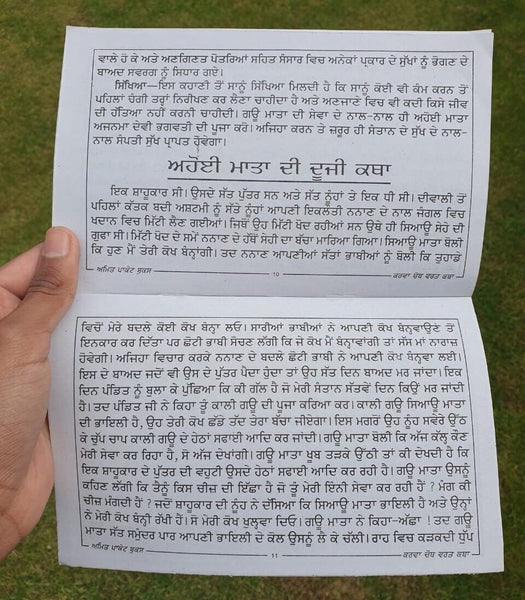 ਵਾਲੇ ਹੋ ਕੇ ਅਤੇ ਅਣਗਿਣਤ ਪੋਤਰਿਆਂ ਸਹਿਤ ਸੰਸਾਰ ਵਿਚ ਅਨੇਕਾਂ ਪ੍ਰਕਾਰ ਦੇ ਸੁੱਖਾਂ ਨੂੰ ਭੋਗਣ ਦੇ
ਬਾਅਦ ਸਵਰਗ ਨੂੰ ਸਿਧਾਰ ਗਏ।
ਸਿੱਖਿਆ—ਇਸ ਕਹਾਣੀ ਤੋਂ ਸਾਨੂੰ ਸਿੱਖਿਆ ਮਿਲਦੀ ਹੈ ਕਿ ਸਾਨੂੰ ਕੋਈ ਵੀ ਕੰਮ ਕਰਨ ਤੋਂ
ਪਹਿਲਾਂ ਚੰਗੀ ਤਰ੍ਹਾਂ ਨਿਰੀਖਣ ਕਰ ਲੈਣਾ ਚਾਹੀਦਾ ਹੈ ਅਤੇ ਅਣਜਾਣੇ ਵਿਚ ਵੀ ਕਦੀ ਕਿਸੇ ਜੀਵ
ਦੀ ਹੱਤਿਆ ਨਹੀਂ ਕਰਨੀ ਚਾਹੀਦੀ। ਗਊ ਮਾਤਾ ਦੀ ਸੇਵਾ ਦੇ ਨਾਲ-ਨਾਲ ਹੀ ਅਹੋਈ ਮਾਤਾ
ਅਜਨਮਾ ਦੇਵੀ ਭਗਵਤੀ ਦੀ ਪੂਜਾ ਕਰੋ। ਅਜਿਹਾ ਕਰਨ ਤੇ ਜ਼ਰੂਰ ਹੀ ਸੰਤਾਨ ਦੇ ਸੁੱਖ ਦੇ ਨਾਲ-
ਨਾਲ ਸੰਪਤੀ ਸੁੱਖ ਪ੍ਰਾਪਤ ਹੋਵੇਗਾ।
ਅਹੋਈ ਮਾਤਾ ਦੀ ਦੂਜੀ ਕਥਾ
ਇਕ ਸ਼ਾਹੂਕਾਰ ਸੀ। ਉਸਦੇ ਸੱਤ ਪੁੱਤਰ ਸਨ ਅਤੇ ਸੱਤ ਨੂੰਹਾਂ ਤੇ ਇਕ ਧੀ ਸੀ। ਦੀਵਾਲੀ ਤੋਂ
ਪਹਿਲਾਂ ਕੱਤਕ ਬਦੀ ਅਸ਼ਟਮੀ ਨੂੰ ਸੱਤੇ ਨੂੰਹਾਂ ਆਪਣੀ ਇਕਲੌਤੀ ਨਨਾਣ ਦੇ ਨਾਲ ਜੰਗਲ ਵਿਚ
ਖਦਾਨ ਵਿਚ ਮਿੱਟੀ ਲੈਣ ਗਈਆਂ। ਜਿਥੋਂ ਉਹ ਮਿੱਟੀ ਖੋਦ ਰਹੀਆਂ ਸਨ ਉਥੇ ਹੀ ਸਿਆਊ ਸੇਹੇ ਦੀ
ਗੁਫਾ ਸੀ। ਮਿੱਟੀ ਖੋਦ ਦੇ ਸਮੇਂ ਨਨਾਣ ਦੇ ਹੱਥੋਂ ਸੇਹੀ ਦਾ ਬੱਚਾ ਮਾਰਿਆ ਗਿਆ। ਸਿਆਊ ਮਾਤਾ ਬੋਲੀ
ਕਿ ਹੁਣ ਮੈਂ ਤੇਰੀ ਕੋਖ ਬੰਨ੍ਹਾਂਗੀ। ਤਦ ਨਨਾਣ ਆਪਣੀਆਂ ਸੱਤਾਂ ਭਾਬੀਆਂ ਨੂੰ ਬੋਲੀ ਕਿ ਤੁਹਾਡੇ
ਅਮਿਤ ਪਾਕੇਟ ਬੁਕਸ 10 ਕਰਵਾ ਚੌਥ ਵਰਤ ਕਥਾ
ਵਿਚੋਂ ਮੇਰੇ ਬਦਲੇ ਕੋਈ ਕੋਖ ਬੰਨ੍ਹਾ ਲਓ। ਸਾਰੀਆਂ ਭਾਬੀਆਂ ਨੇ ਆਪਣੀ ਕੋਖ ਬੰਨ੍ਹਵਾਉਣ ਤੋਂ
ਇਨਕਾਰ ਕਰ ਦਿੱਤਾ ਪਰ ਛੋਟੀ ਭਾਬੀ ਸੋਚਣ ਲੱਗੀ ਕਿ ਜੇ ਕੋਖ ਮੈਂ ਬੰਨ੍ਹਾਵਾਂਗੀ ਤਾਂ ਸੱਸ ਮਾਂ ਨਾਰਾਜ਼
ਹੋਵੇਗੀ। ਅਜਿਹਾ ਵਿਚਾਰ ਕਰਕੇ ਨਨਾਣ ਦੇ ਬਦਲੇ ਛੋਟੀ ਭਾਬੀ ਨੇ ਆਪਣੀ ਕੋਖ ਬੰਨ੍ਹਵਾ ਲਈ।
ਇਸ ਦੇ ਬਾਅਦ ਜਦੋਂ ਵੀ ਉਸ ਦੇ ਪੁੱਤਰ ਪੈਦਾ ਹੁੰਦਾ ਤਾਂ ਉਹ ਸੱਤ ਦਿਨ ਬਾਅਦ ਮਰ ਜਾਂਦਾ। ਇਕ
ਦਿਨ ਪੰਡਿਤ ਨੂੰ ਬੁਲਾ ਕੇ ਪੁੱਛਿਆ ਕਿ ਕੀ ਗੱਲ ਹੈ ਜੋ ਮੇਰੀ ਸੰਤਾਨ ਸੱਤਵੇਂ ਦਿਨ ਕਿਉਂ ਮਰ ਜਾਂਦੀ
ਹੈ। ਤਦ ਪੰਡਿਤ ਜੀ ਨੇ ਕਿਹਾ ਤੂੰ ਕਾਲੀ ਗਊ ਦੀ ਪੂਜਾ ਕਰਿਆ ਕਰ। ਕਾਲੀ ਗਊ ਸਿਆਊ ਮਾਤਾ
ਦੀ ਭਾਇਲੀ ਹੈ, ਉਹ ਤੇਰੀ ਕੋਖ ਛੱਡੇ ਤਦ ਤੇਰਾ ਬੱਚਾ ਜੀਏਗਾ। ਇਸ ਮਗਰੋਂ ਉਹ ਨੂੰਹ ਸਵੇਰੇ ਉੱਠ
ਕੇ ਚੁੱਪ ਚਾਪ ਕਾਲੀ ਗਊ ਦੇ ਹੇਠਾਂ ਸਫਾਈ ਆਦਿ ਕਰ ਜਾਂਦੀ। ਗਊ ਮਾਤਾ ਬੋਲੀ ਕਿ ਅੱਜ ਕੱਲ੍ਹ ਕੌਣ
ਮੇਰੀ ਸੇਵਾ ਕਰ ਰਿਹਾ ਹੈ, ਸੋ ਅੱਜ ਦੇਖਾਂਗੀ। ਗਊ ਮਾਤਾ ਖੂਬ ਤੜਕੇ ਉੱਠੀ ਤਾਂ ਕੀ ਦੇਖਦੀ ਹੈ ਕਿ
ਇਕ ਸ਼ਾਹੂਕਾਰ ਦੇ ਪੁੱਤਰ ਦੀ ਵਹੁਟੀ ਉਸਦੇ ਹੇਠਾਂ ਸਫਾਈ ਆਦਿ ਕਰ ਰਹੀ ਹੈ। ਗਊ ਮਾਤਾ ਉਸਨੂੰ
ਕਹਿਣ ਲੱਗੀ ਕਿ ਤੈਨੂੰ ਕਿਸ ਚੀਜ਼ ਦੀ ਇੱਛਾ ਹੈ ਜੋ ਤੂੰ ਮੇਰੀ ਇੰਨੀ ਸੇਵਾ ਕਰ ਰਹੀ ਹੈਂ ? ਮੰਗ ਕੀ
ਚੀਜ਼ ਮੰਗਦੀ ਹੈਂ ? ਜਦੋਂ ਸ਼ਾਹੂਕਾਰ ਦੀ ਨੂੰਹ ਨੇ ਦੱਸਿਆ ਕਿ ਸਿਆਊ ਮਾਤਾ ਭਾਇਲੀ ਹੈ ਅਤੇ ਉਨ੍ਹਾਂ
ਨੇ ਮੇਰੀ ਕੋਖ ਬੰਨ੍ਹੀ ਰੱਖੀ ਹੈਂ। ਸੋ ਮੇਰੀ ਕੋਖ ਖੁਲ੍ਹਵਾ ਦਿਓ। ਗਊ ਮਾਤਾ ਨੇ ਕਿਹਾ-ਅੱਛਾ ! ਤਦ ਗਊ
ਮਾਤਾ ਸੱਤ ਸਮੁੰਦਰ ਪਾਰ ਆਪਣੀ ਭਾਇਲੀ ਦੇ ਕੋਲ ਉਸਨੂੰ ਲੈ ਕੇ ਚੱਲੀ। ਰਾਹ ਵਿਚ ਕੜਕਦੀ ਧੁੱਪ
ਅਮਿਤ ਪਾਕੇਟ ਬੁਕਸ 11 ਕਰਵਾ ਚੌਥ ਵਰਤ ਕਥਾ